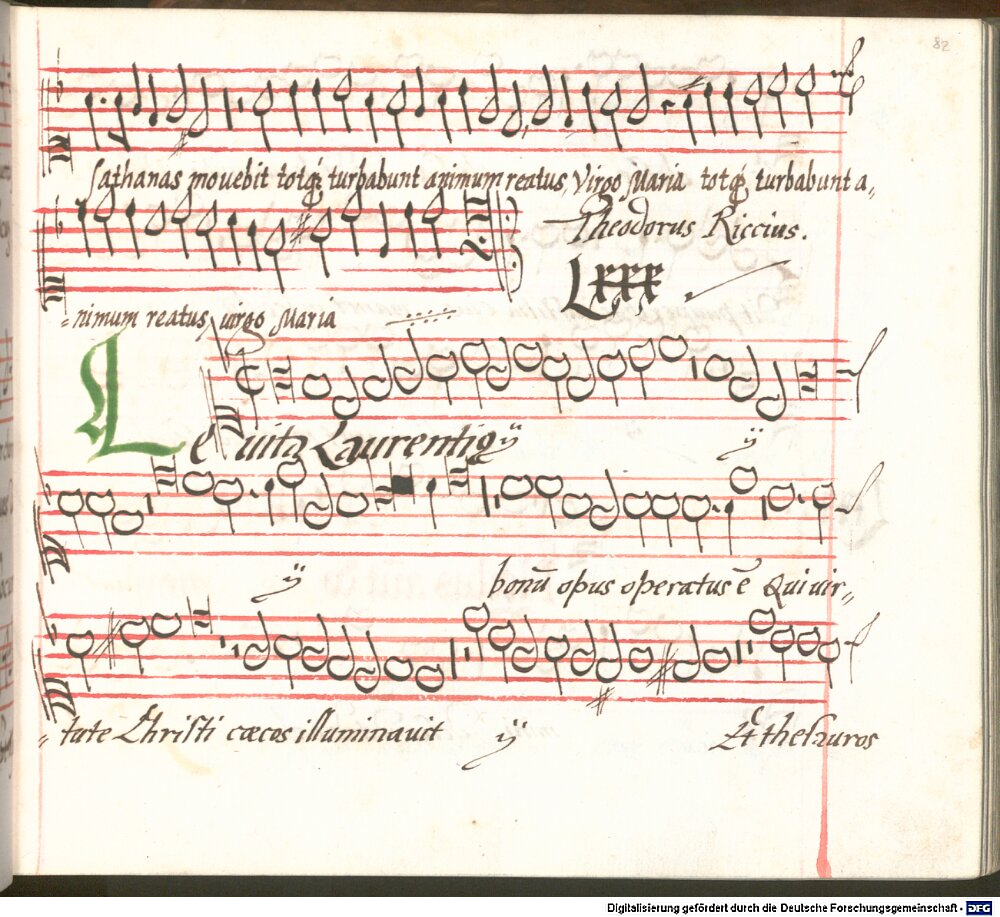 82
Sathanas movebit totq; turbabunt animum reatus, Virgo Maria totq; turbabunt a„
Theodorus Riccius.
LXXX
„nimum reatus, virgo Maria
Leuita Laurentiq ij ij
ij bonū opus operatus ē Qui uir„
„tute Christi cæcos illuminauit ij Et thesauros
Digitalisierung gefördert durch die Deutsche Forschungsgemeinschaft - DFG